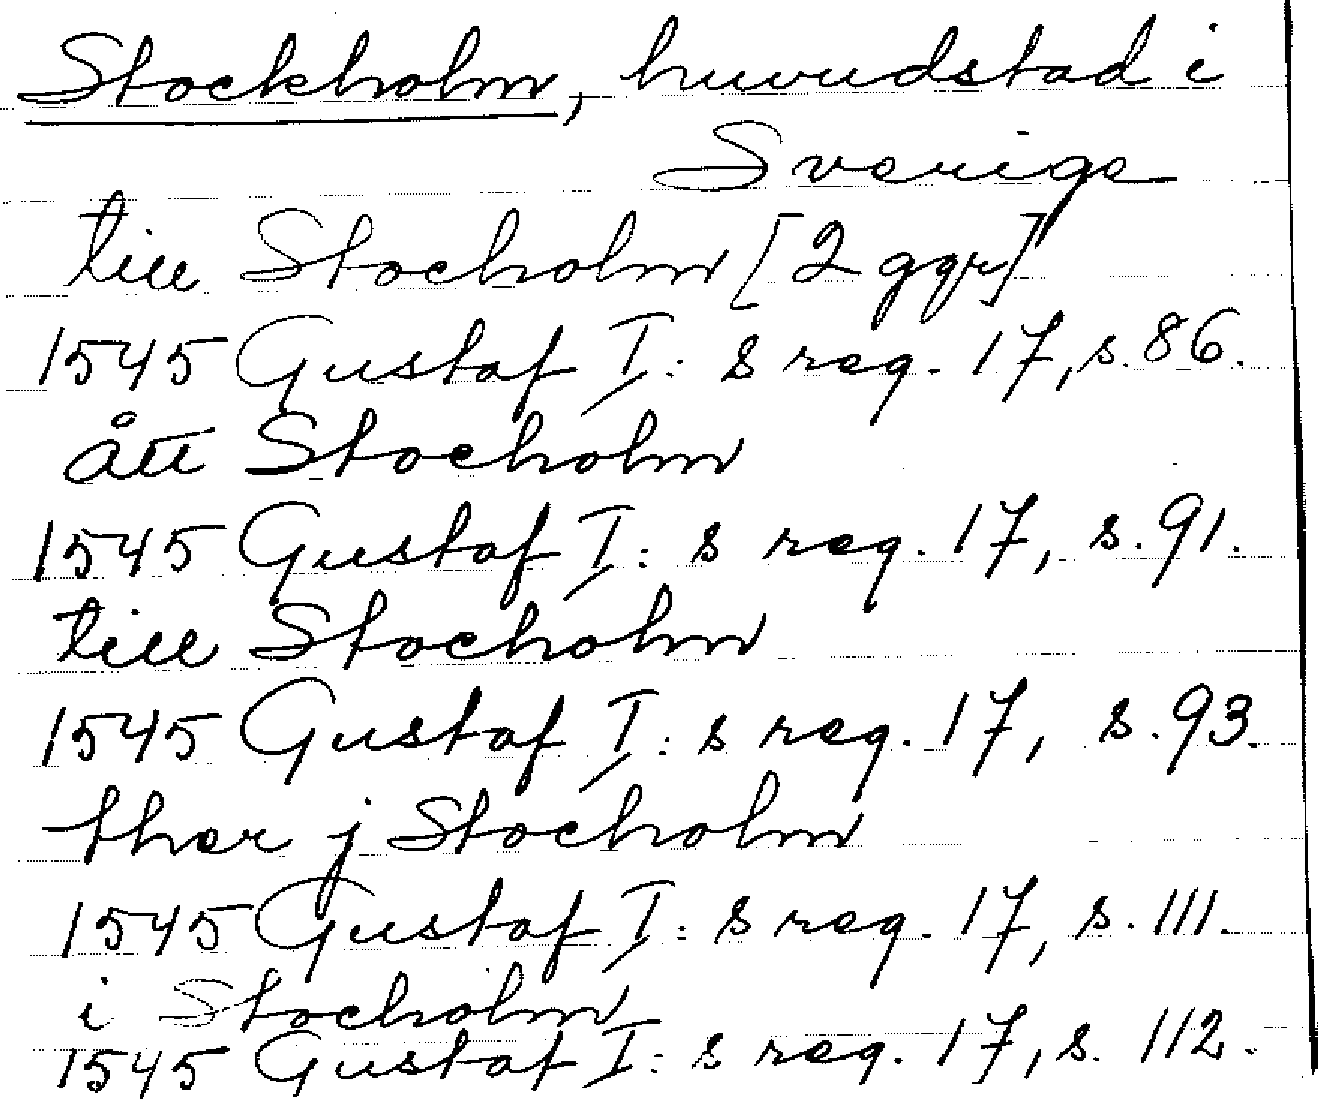 Stockholm, huvudstad i
Sverige
till Stocholm [2 ggr]
1545 Gustaf I: s reg. 17, s. 86.
ått Stocholm
1545 Gustaf I: s reg. 17, s. 91.
till Stocholm
1545 Gustaf I: s reg. 17, s. 93.
ther j Stocholm
1545 Gustaf I: s reg. 17, s. 111.
i Stocholm
1545 Gustaf I: s reg. 17, s. 112.